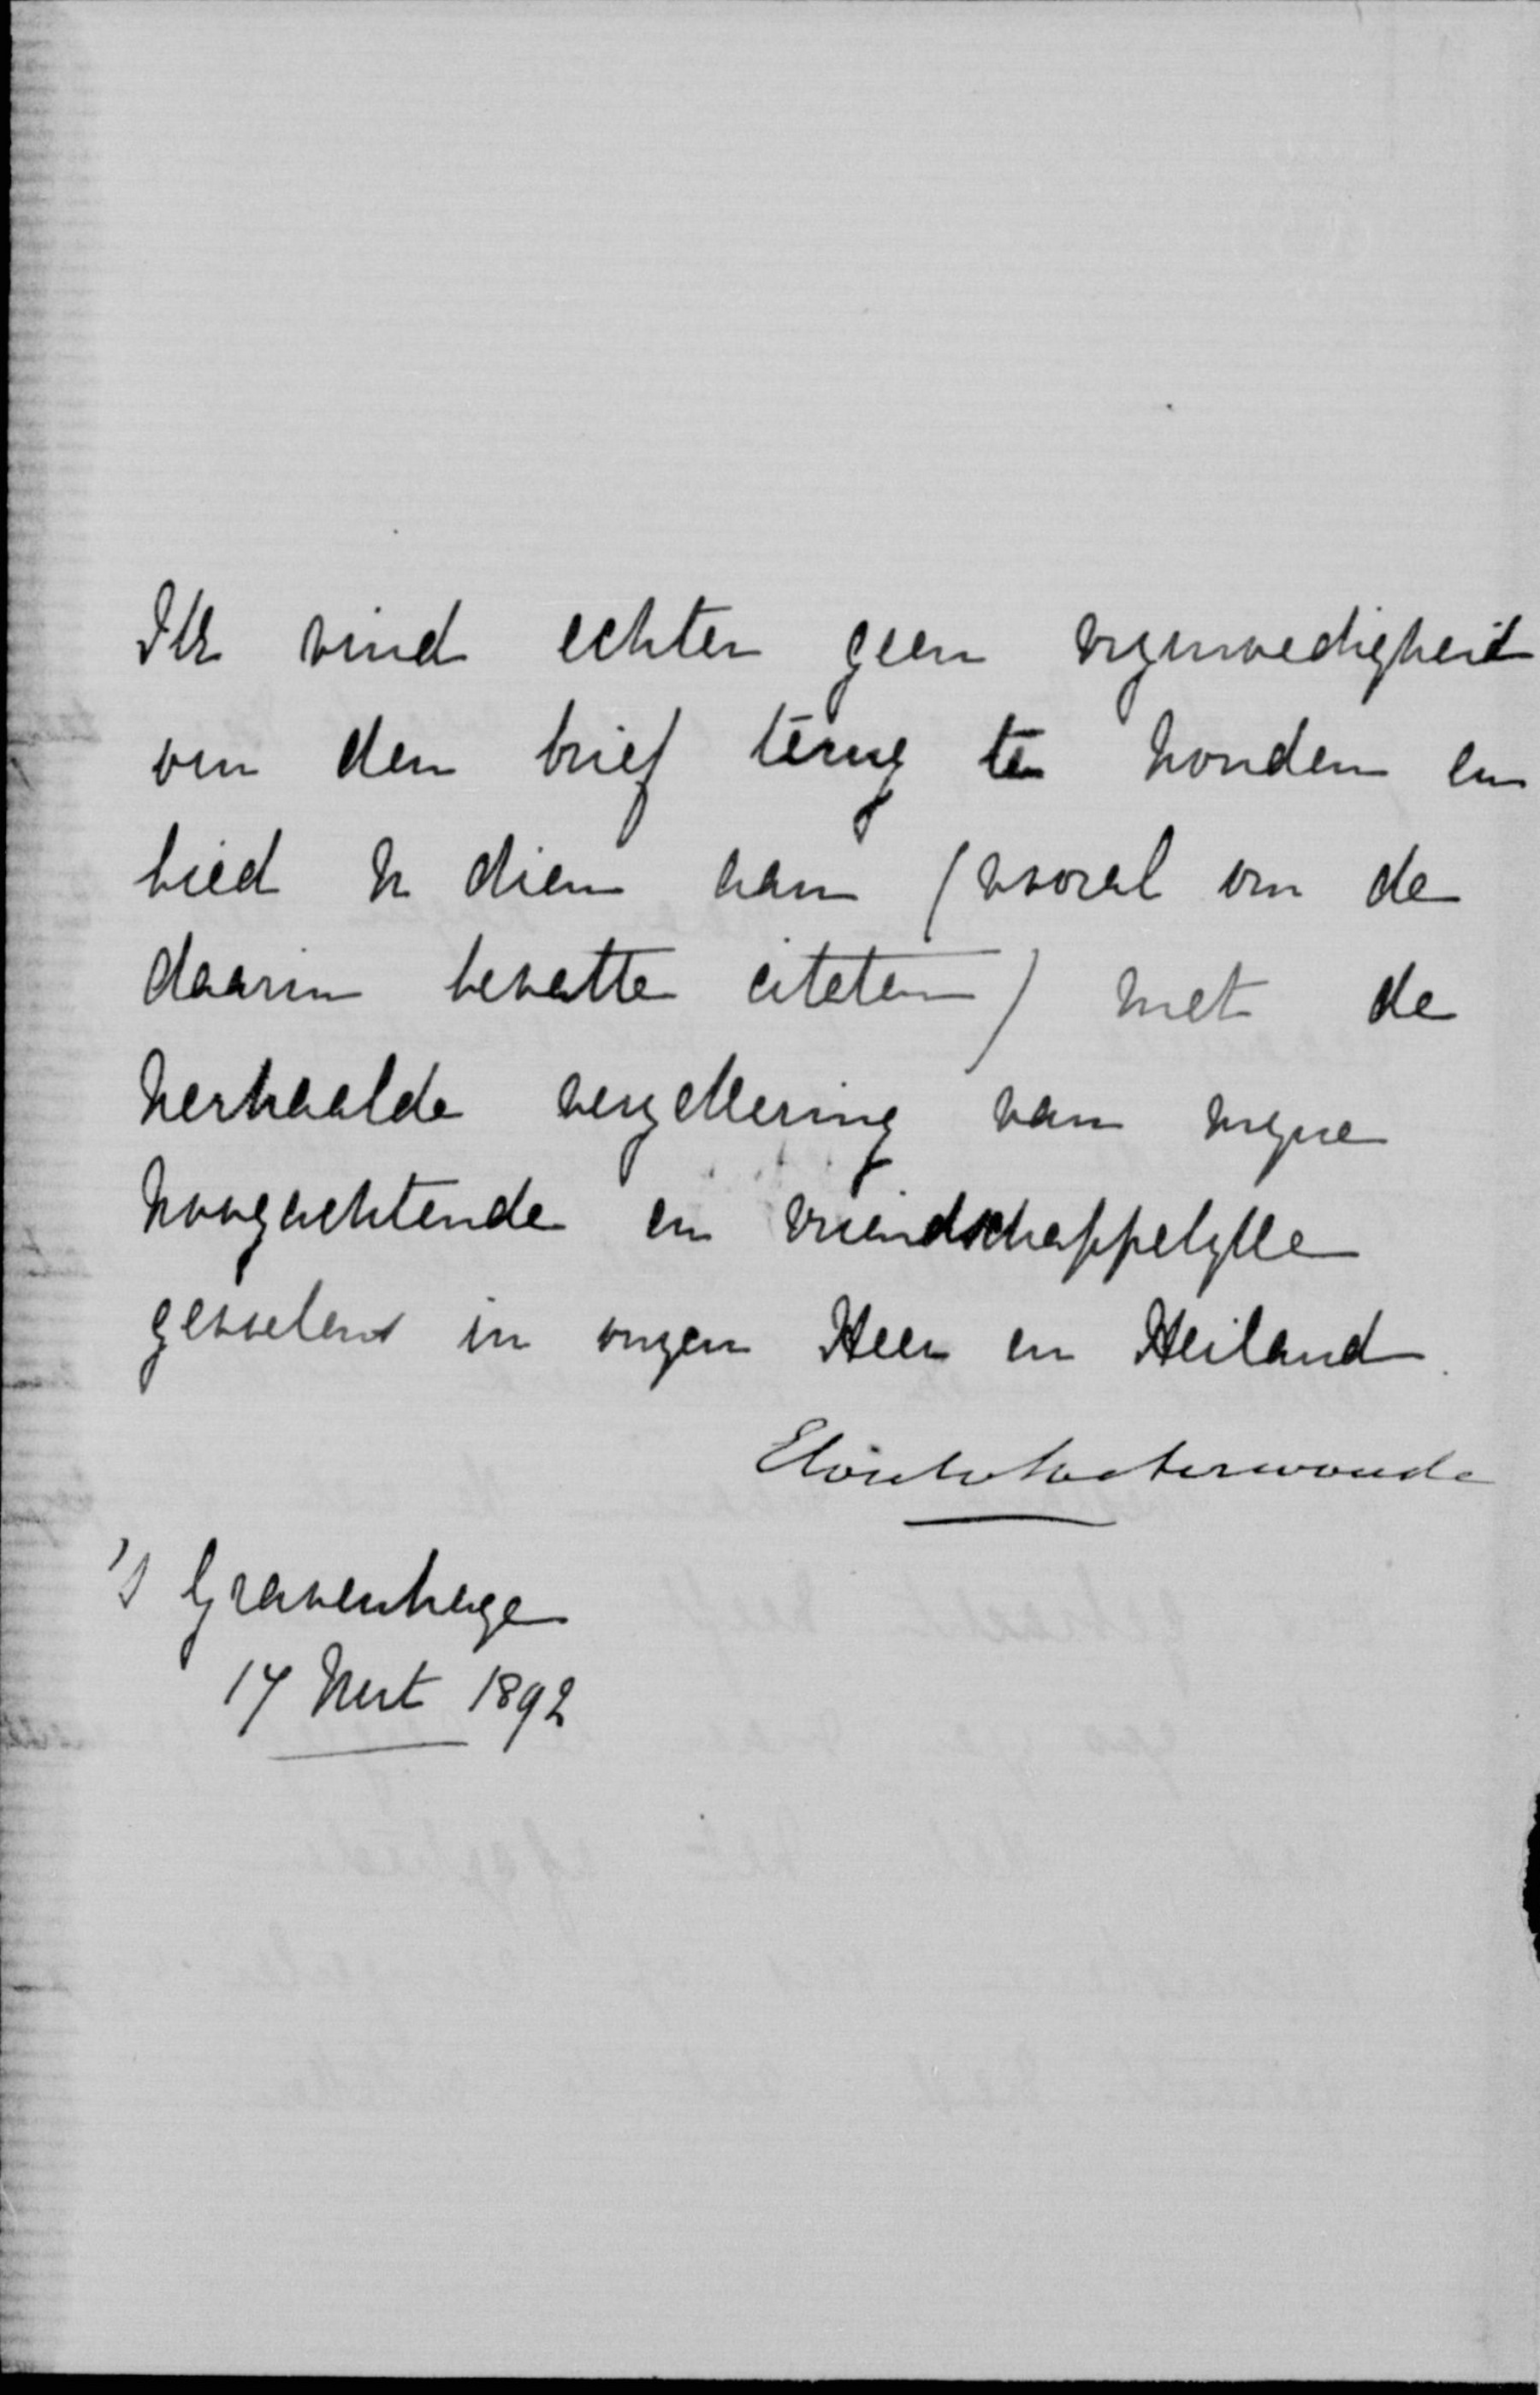 Ik vind echter geen vrymoedigheid
om den brief terug te houden en
bied U dien aan (vooral om de
daarin bevatte citaten) met de
herhaalde verzekering van myne
hoogachtende en vriendschappelyke
gevoelens in onzen Heer en Heiland.
Elout v Soeterwoude
's Gravenhage
17 Mrt 1892